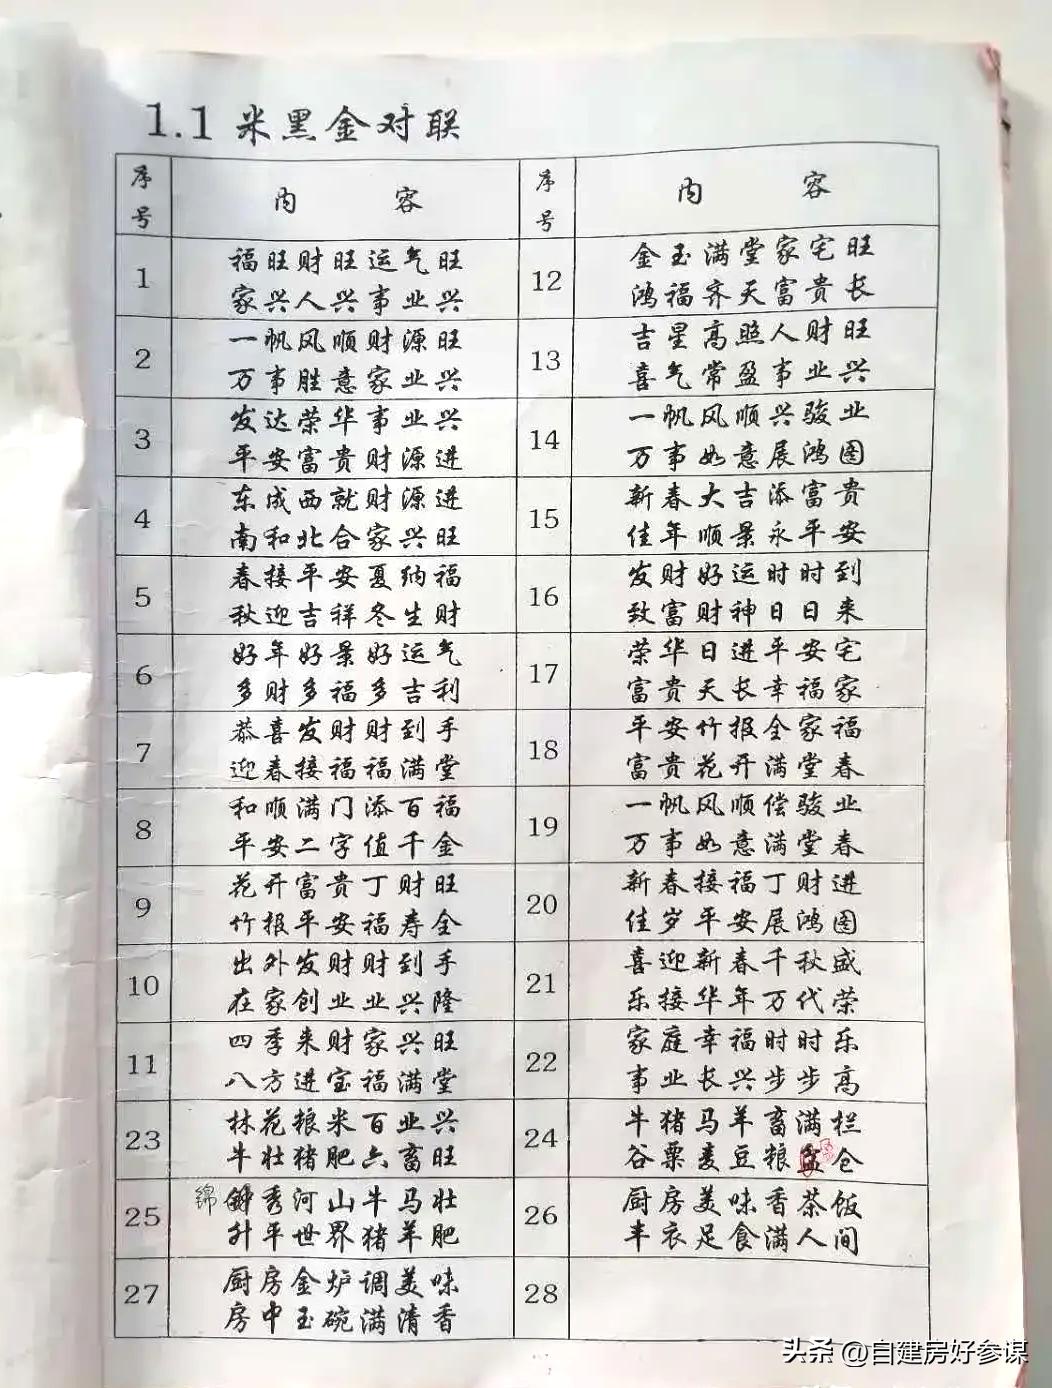 1.1 米黑金对联
序号 内容 序号 内容
1
福旺财旺运气旺
家兴人兴事业兴
12
金玉满堂家宅旺
鸿福齐天富贵长
2
一帆风顺财源旺
万事胜意家业兴
13
吉星高照人财旺
喜气常盈事业兴
3
发达荣华事业兴
平安富贵财源进
14
一帆风顺兴骏业
万事如意展鸿图
4
东成西就财源进
南和北合家兴旺
15
新春大吉添富贵
佳年顺景永平安
5
春接平安夏纳福
秋迎吉祥冬生财
16
发财好运时时到
致富财神日日来
6
好年好景好运气
多财多福多吉利
17
荣华日进平安宅
富贵天长幸福家
7
恭喜发财财到手
迎春接福福满堂
18
平安竹报全家福
富贵花开满堂春
8
和顺满门添百福
平安二字值千金
19
一帆风顺偿骏业
万事如意满堂春
9
花开富贵丁财旺
竹报平安福寿全
20
新春接福丁财进
佳岁平安展鸿图
10
出外发财财到手
在家创业业兴隆
21
喜迎新春千秋盛
乐接华年万代荣
11
四季来财家兴旺
八方进宝福满堂
22
家庭幸福时时乐
事业长兴步步高
23
林花粮米百业兴
牛壮猪肥六畜旺
24
牛猪马羊畜满栏
谷粟麦豆粮仓
25
锦秀河山牛马壮
升平世界猪羊肥
26
厨房美味香茶饭
丰衣足食满人间
27
厨房金炉调美味
房中玉碗满清香
28
头条 @自建房好参谋